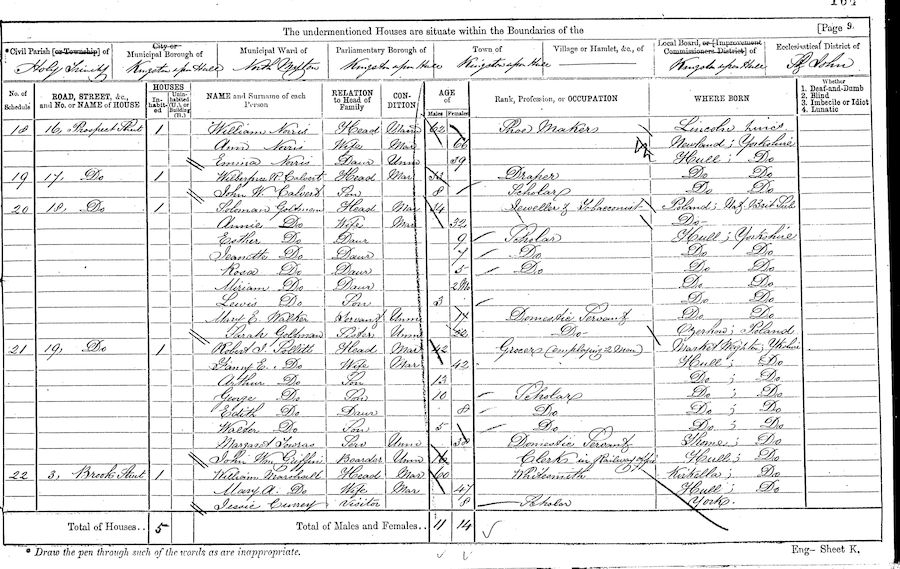 164
The undermentioned Houses are situate within the Boundaries of the [Page 9.
*Civil Parish [or Township] of City or Municipal Borough of Municipal Ward of Parliamentary Borough of Town of Village or Hamlet, &c., of Local Board, or [Improvement Commissioners District] of Ecclesiastical District of
Holy Trinity Kingston upon Hull North Myton Kingston upon Hull Kingston upon Hull Kingston upon Hull St John
No. of Schedule ROAD, STREET, &c., and No. or NAME of HOUSE HOUSES Inhabited Uninhabited (U.), or Building (B.) NAME and Surname of each Person RELATION to Head of Family CONDITION AGE of Males Females Rank, Profession, or OCCUPATION WHERE BORN Whether 1. Deaf-and-Dumb 2. Blind 3. Imbecile or Idiot 4. Lunatic
18 16, Prospect Street 1 William Norris Head 62 Shoe Maker Lincoln
Ann Norris Wife Mar 66 Newland; Yorkshire
Emma Norris Daur Unm 39 Hull; Do
19 17, Do 1 Calvert Head Mar 33 Draper Do Do
John W. Calvert Son 8 Scholar Do Do
20 18, Do 1 Soloman Goldman Head Mar 34 Jeweller & Tobacconist Poland;
Annie Do Wife Mar 32 Do
Esther Do Daur 9 Scholar Hull; Yorkshire
Do Daur 7 Do Do Do
Rosa Do Daur 5 Do Do Do
Miriam Do Daur 2m Do Do
Lewis Do Son 3 Do Do
Mary E. Walker Servant Unm Domestic Servant Do Do
Sarah Goldman Sister Unm 22 Do Poland
21 19, Do 1 Robert Head Mar 42 Grocer (employing 2 men) Market Weighton;
Fanny E. Do Wife Mar 42 Hull; Do
Arthur Do Son 13 Do; Do
George Do Son 10 Scholar Do; Do
Edith Do Daur 8 Do Do; Do
Walter Do Son 5 Do Do; Do
Margaret Serv Unm 38 Domestic Servant Do
John Wm Griffin Boarder Unm 16 Clerk in Railway Office Hull; Do
22 3, Brook Street 1 William Marshall Head Mar Whitesmith Kirkella; Do
Mary A. Do Wife Mar 47 Hull; Do
Jessie Visitor 8 Scholar York
Total of Houses.. 5 Total of Males and Females.. 11 14
* Draw the pen through such of the words as are inappropriate. Eng- Sheet K.